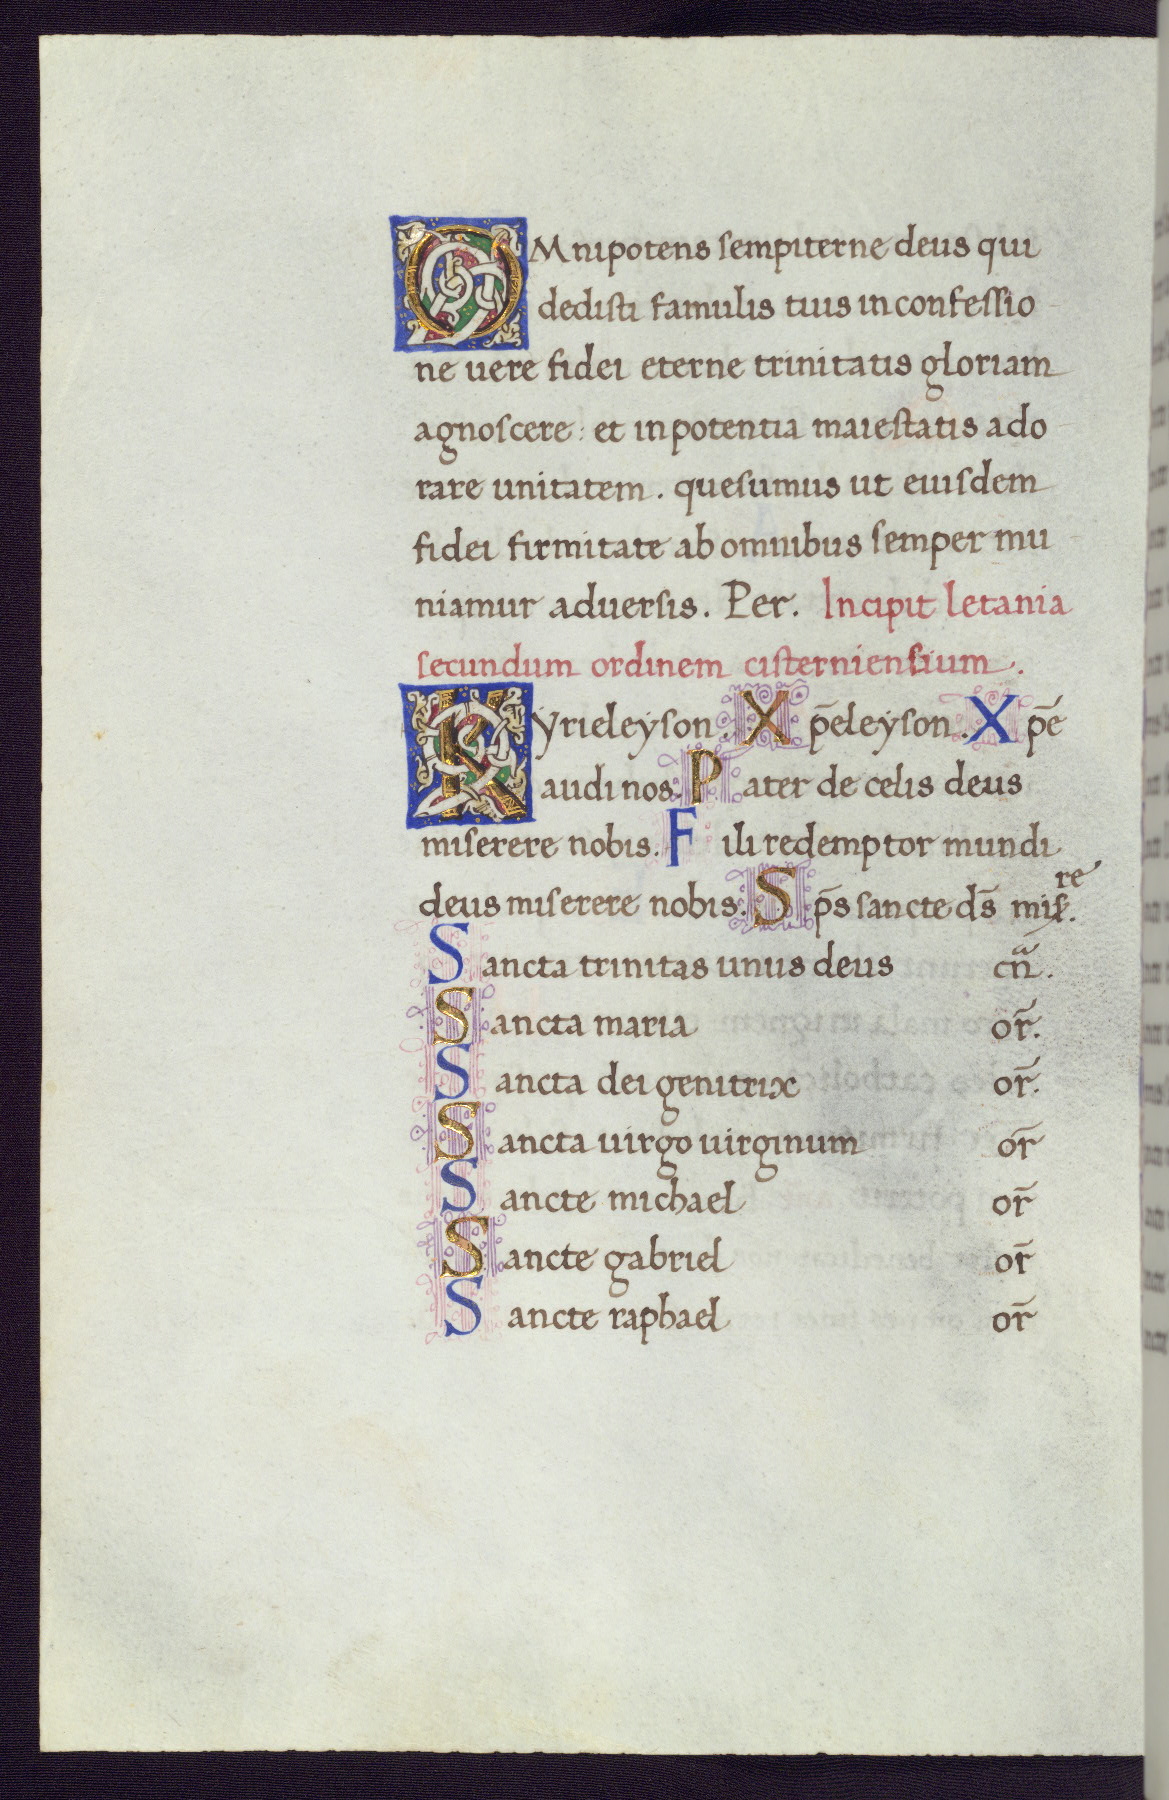 OMnipotens sempiterne deus qui
dedisti famulis tuis in confessio
ne uere fidei eterne trinitatis gloriam
agnoscere : et in potentia maiestatis ado
rare unitatem . quesumus ut eiusdem
fidei firmitate ab omnibus semper mu
niamur aduersis . Per . Incipit letania
secundum ordinem cisterniensium .
Kyrieleyson . Xp̄eleyson . Xp̄e
audi nos . Pater de celis deus
miserere nobis . Fili redemptor mundi
deus miserere nobis . Sp̄s sancte ds̄ misre .
Sancta trinitas unus deus
Sancta maria or̄ .
Sancta dei genitrix or̄ .
Sancta uirgo uirginum or̄
Sancte michael or̄
Sancte gabriel or̄
Sancte raphael or̄